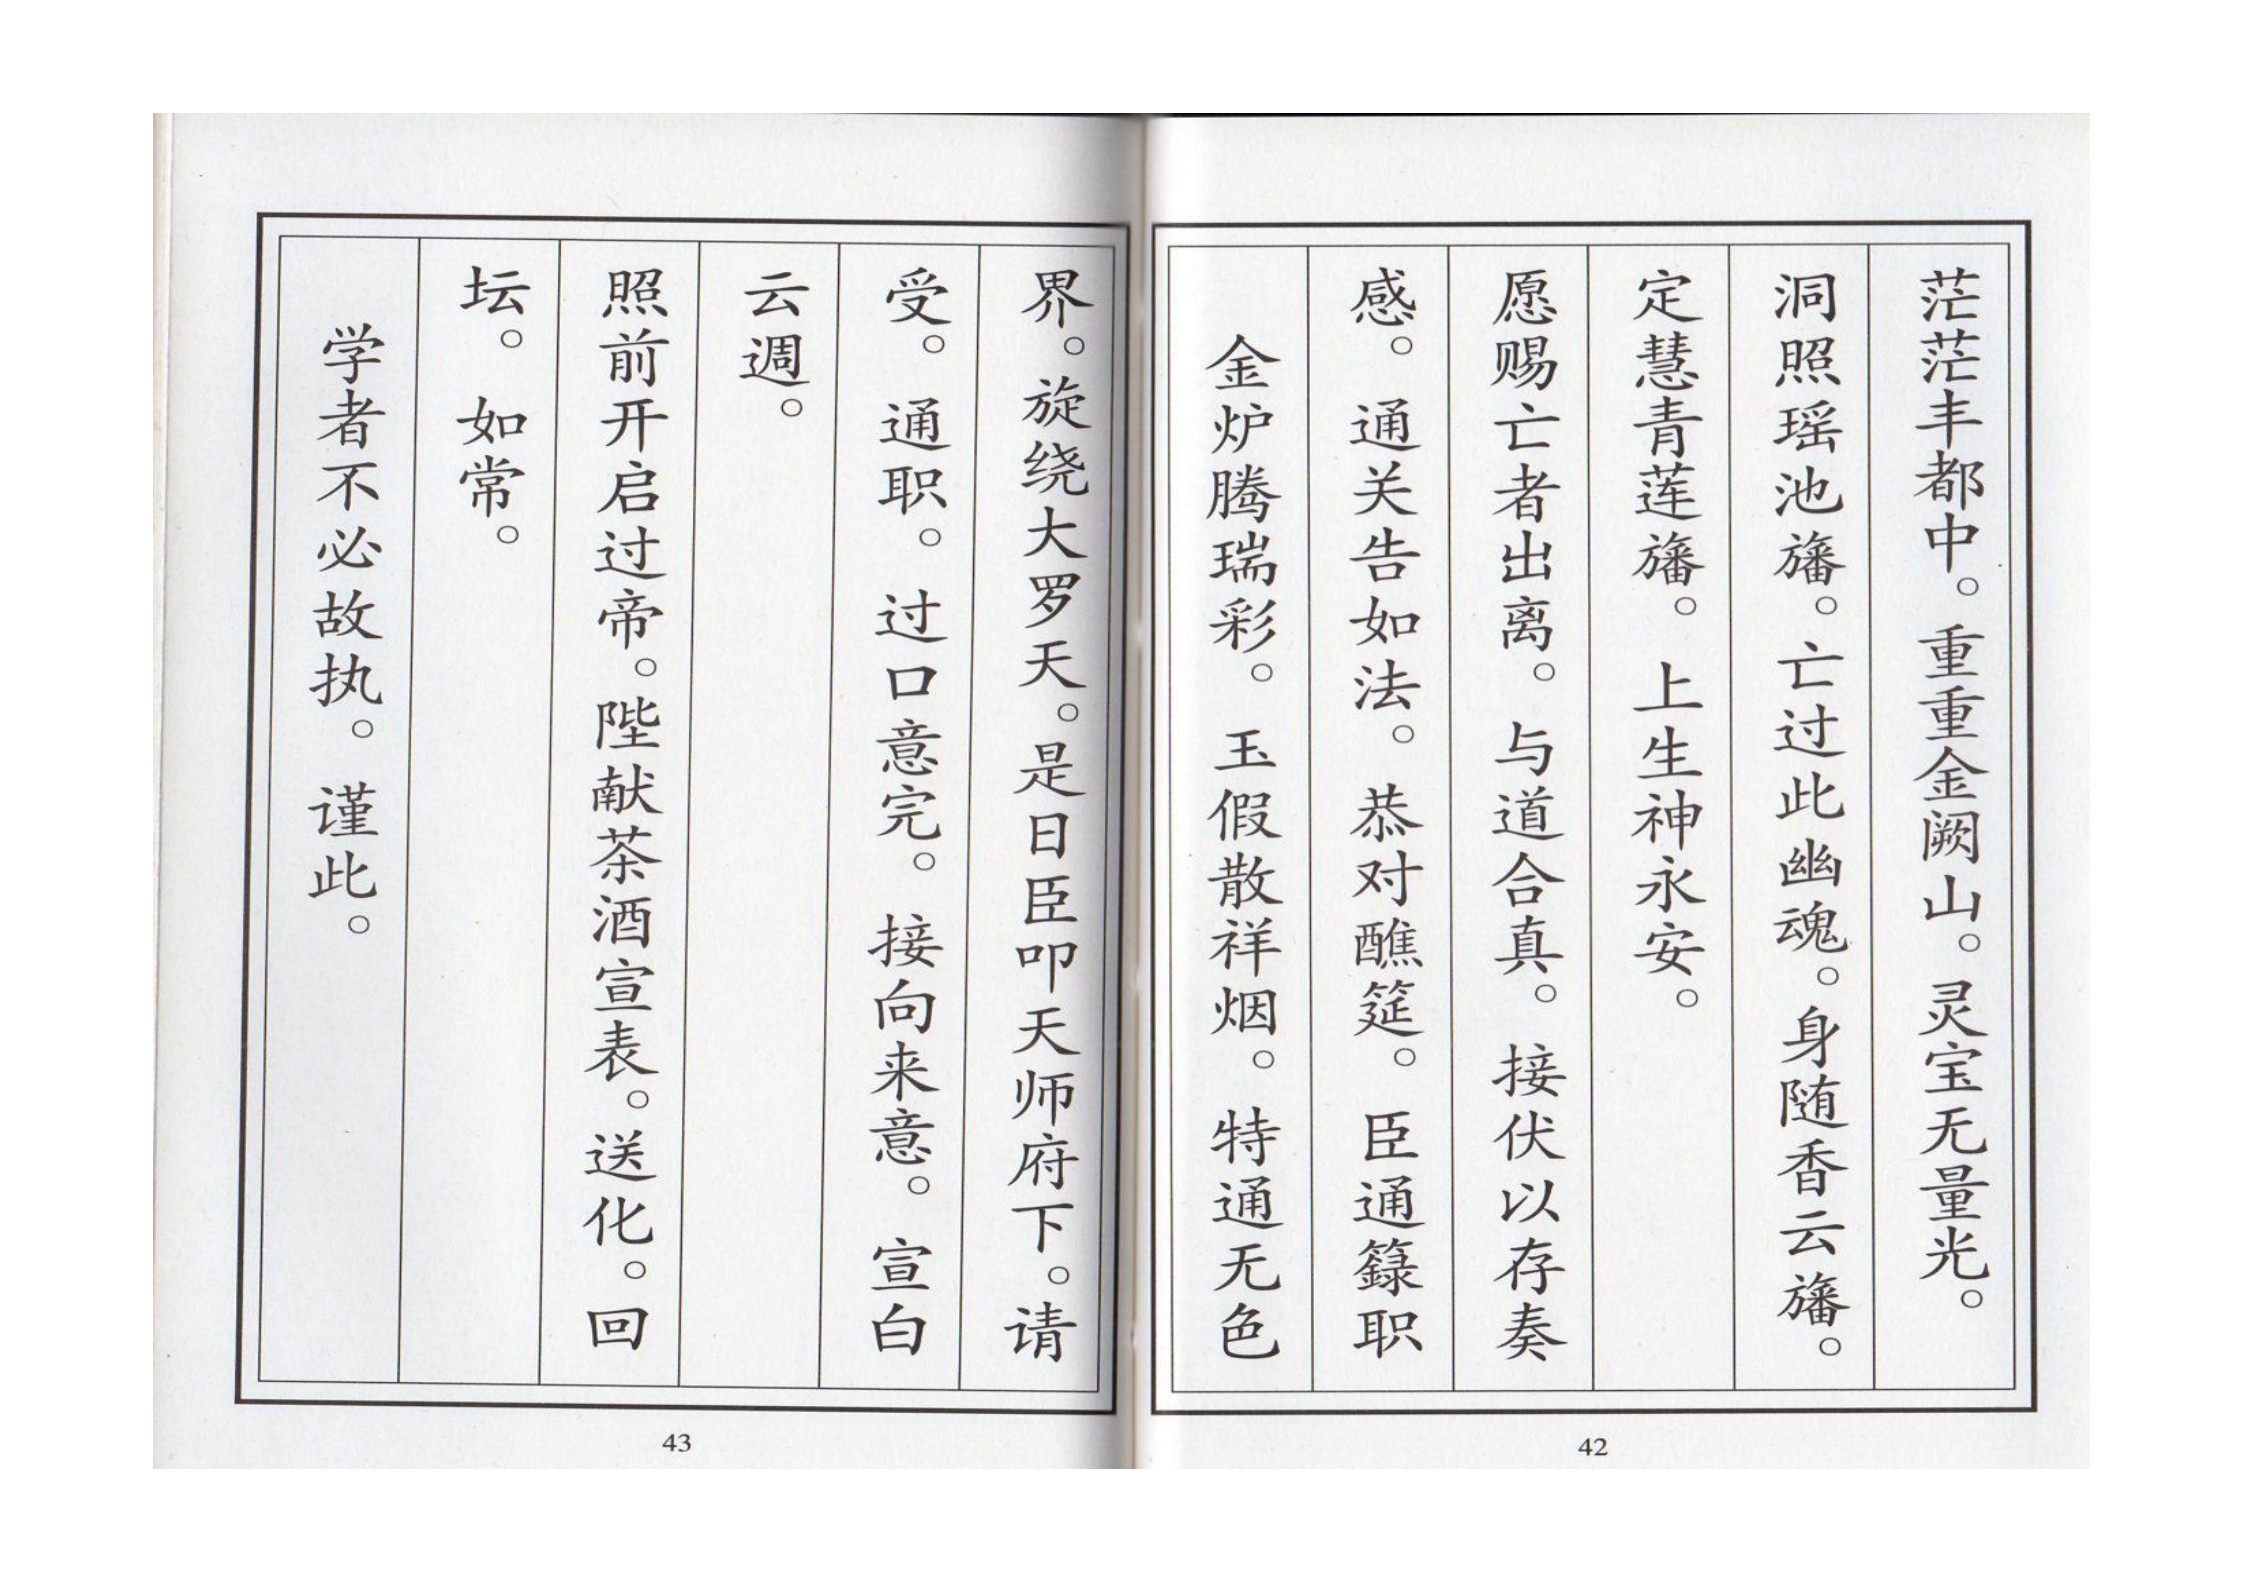 茫茫丰都中。重重金阙山。灵宝无量光。
洞照瑶池旛。亡过此幽魂。身随香云旛。
定慧青莲旛。上生神永安。
愿赐亡者出离。与道合真。接伏以存奏
感。通关告如法。恭对醮筵。臣通籙职
金炉腾瑞彩。玉假散祥烟。特通无色
42
界。旋绕大罗天。是日臣叩天师府下。请
受。通职。过口意完。接向来意。宣白
云週。
照前开启过帝。陛献茶酒宣表。送化。回
坛。如常。
学者不必故执。谨此。
43